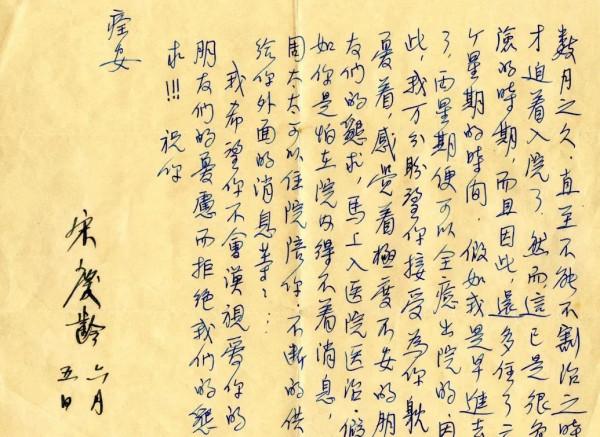 数月之久，直至不能不割治之時
才迫着入院了，然而這已是很危
險的時期，而且因此，還多住了
个星期的時间，假如我是早進去
了，两星期便可以全癒出院的，因
此，我万分盼望你接受為你躭
憂着，感覺着極度不安的朋
友們的懇求，馬上入医院医治，假
如你是怕在院内得不着消息，
周太太可以住院陪你，不断的供
給你外面的消息等等……
我希望你不會漠視愛你的
朋友們的憂慮而拒絕我們的懇
求!!! 祝你
痊安
宋慶齡
六月
五日